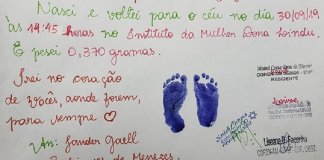 Nasci e voltei para o ceu no dia 30/09/19
às 14:45 horas no Instituto da Mulher Dona Lindu.
E pesei 0,370 gramas.
Irei no coração
de vocês, aonde forem,
para sempre
Ass: Jander Gaell
de Menezes
RESIDENTE